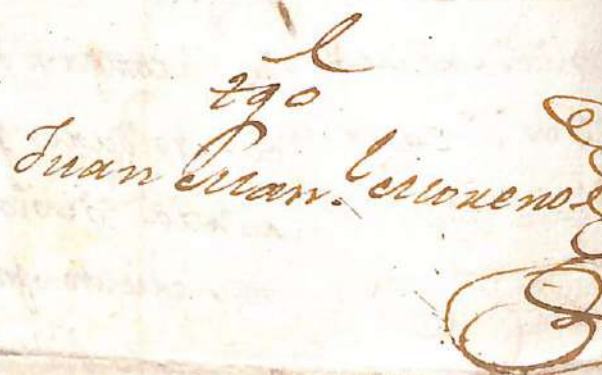 tgo
Juan Man.l Moreno